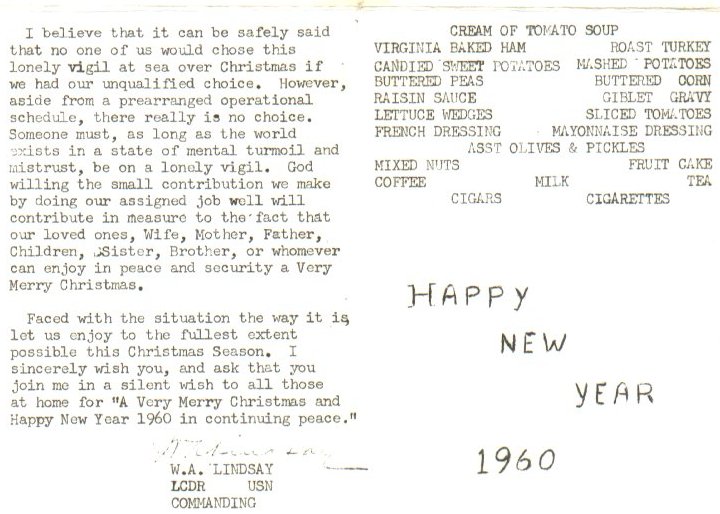 I believe that it can be safely said
that no one of us would chose this
lonely vigil at sea over Christmas if
we had our unqualified choice. However,
aside from a prearranged operational
schedule, there really is no choice.
Someone must, as long as the world
exists in a state of mental turmoil and
mistrust, be on a lonely vigil. God
willing the small contribution we make
by doing our assigned job well will
contribute in measure to the fact that
our loved ones, Wife, Mother, Father,
Children, Sister, Brother, or whomever
can enjoy in peace and security a Very
Merry Christmas.
Faced with the situation the way it is,
let us enjoy to the fullest extent
possible this Christmas Season. I
sincerely wish you, and ask that you
join me in a silent wish to all those
at home for "A Very Merry Christmas and
Happy New Year 1960 in continuing peace."
W.A. LINDSAY
LCDR USN
COMMANDING
CREAM OF TOMATO SOUP
VIRGINIA BAKED HAM ROAST TURKEY
CANDIED SWEET POTATOES MASHED POTATOES
BUTTERED PEAS BUTTERED CORN
RAISIN SAUCE GIBLET GRAVY
LETTUCE WEDGES SLICED TOMATOES
FRENCH DRESSING MAYONNAISE DRESSING
ASST OLIVES & PICKLES
MIXED NUTS FRUIT CAKE
COFFEE MILK TEA
CIGARS CIGARETTES
HAPPY
NEW
YEAR
1960